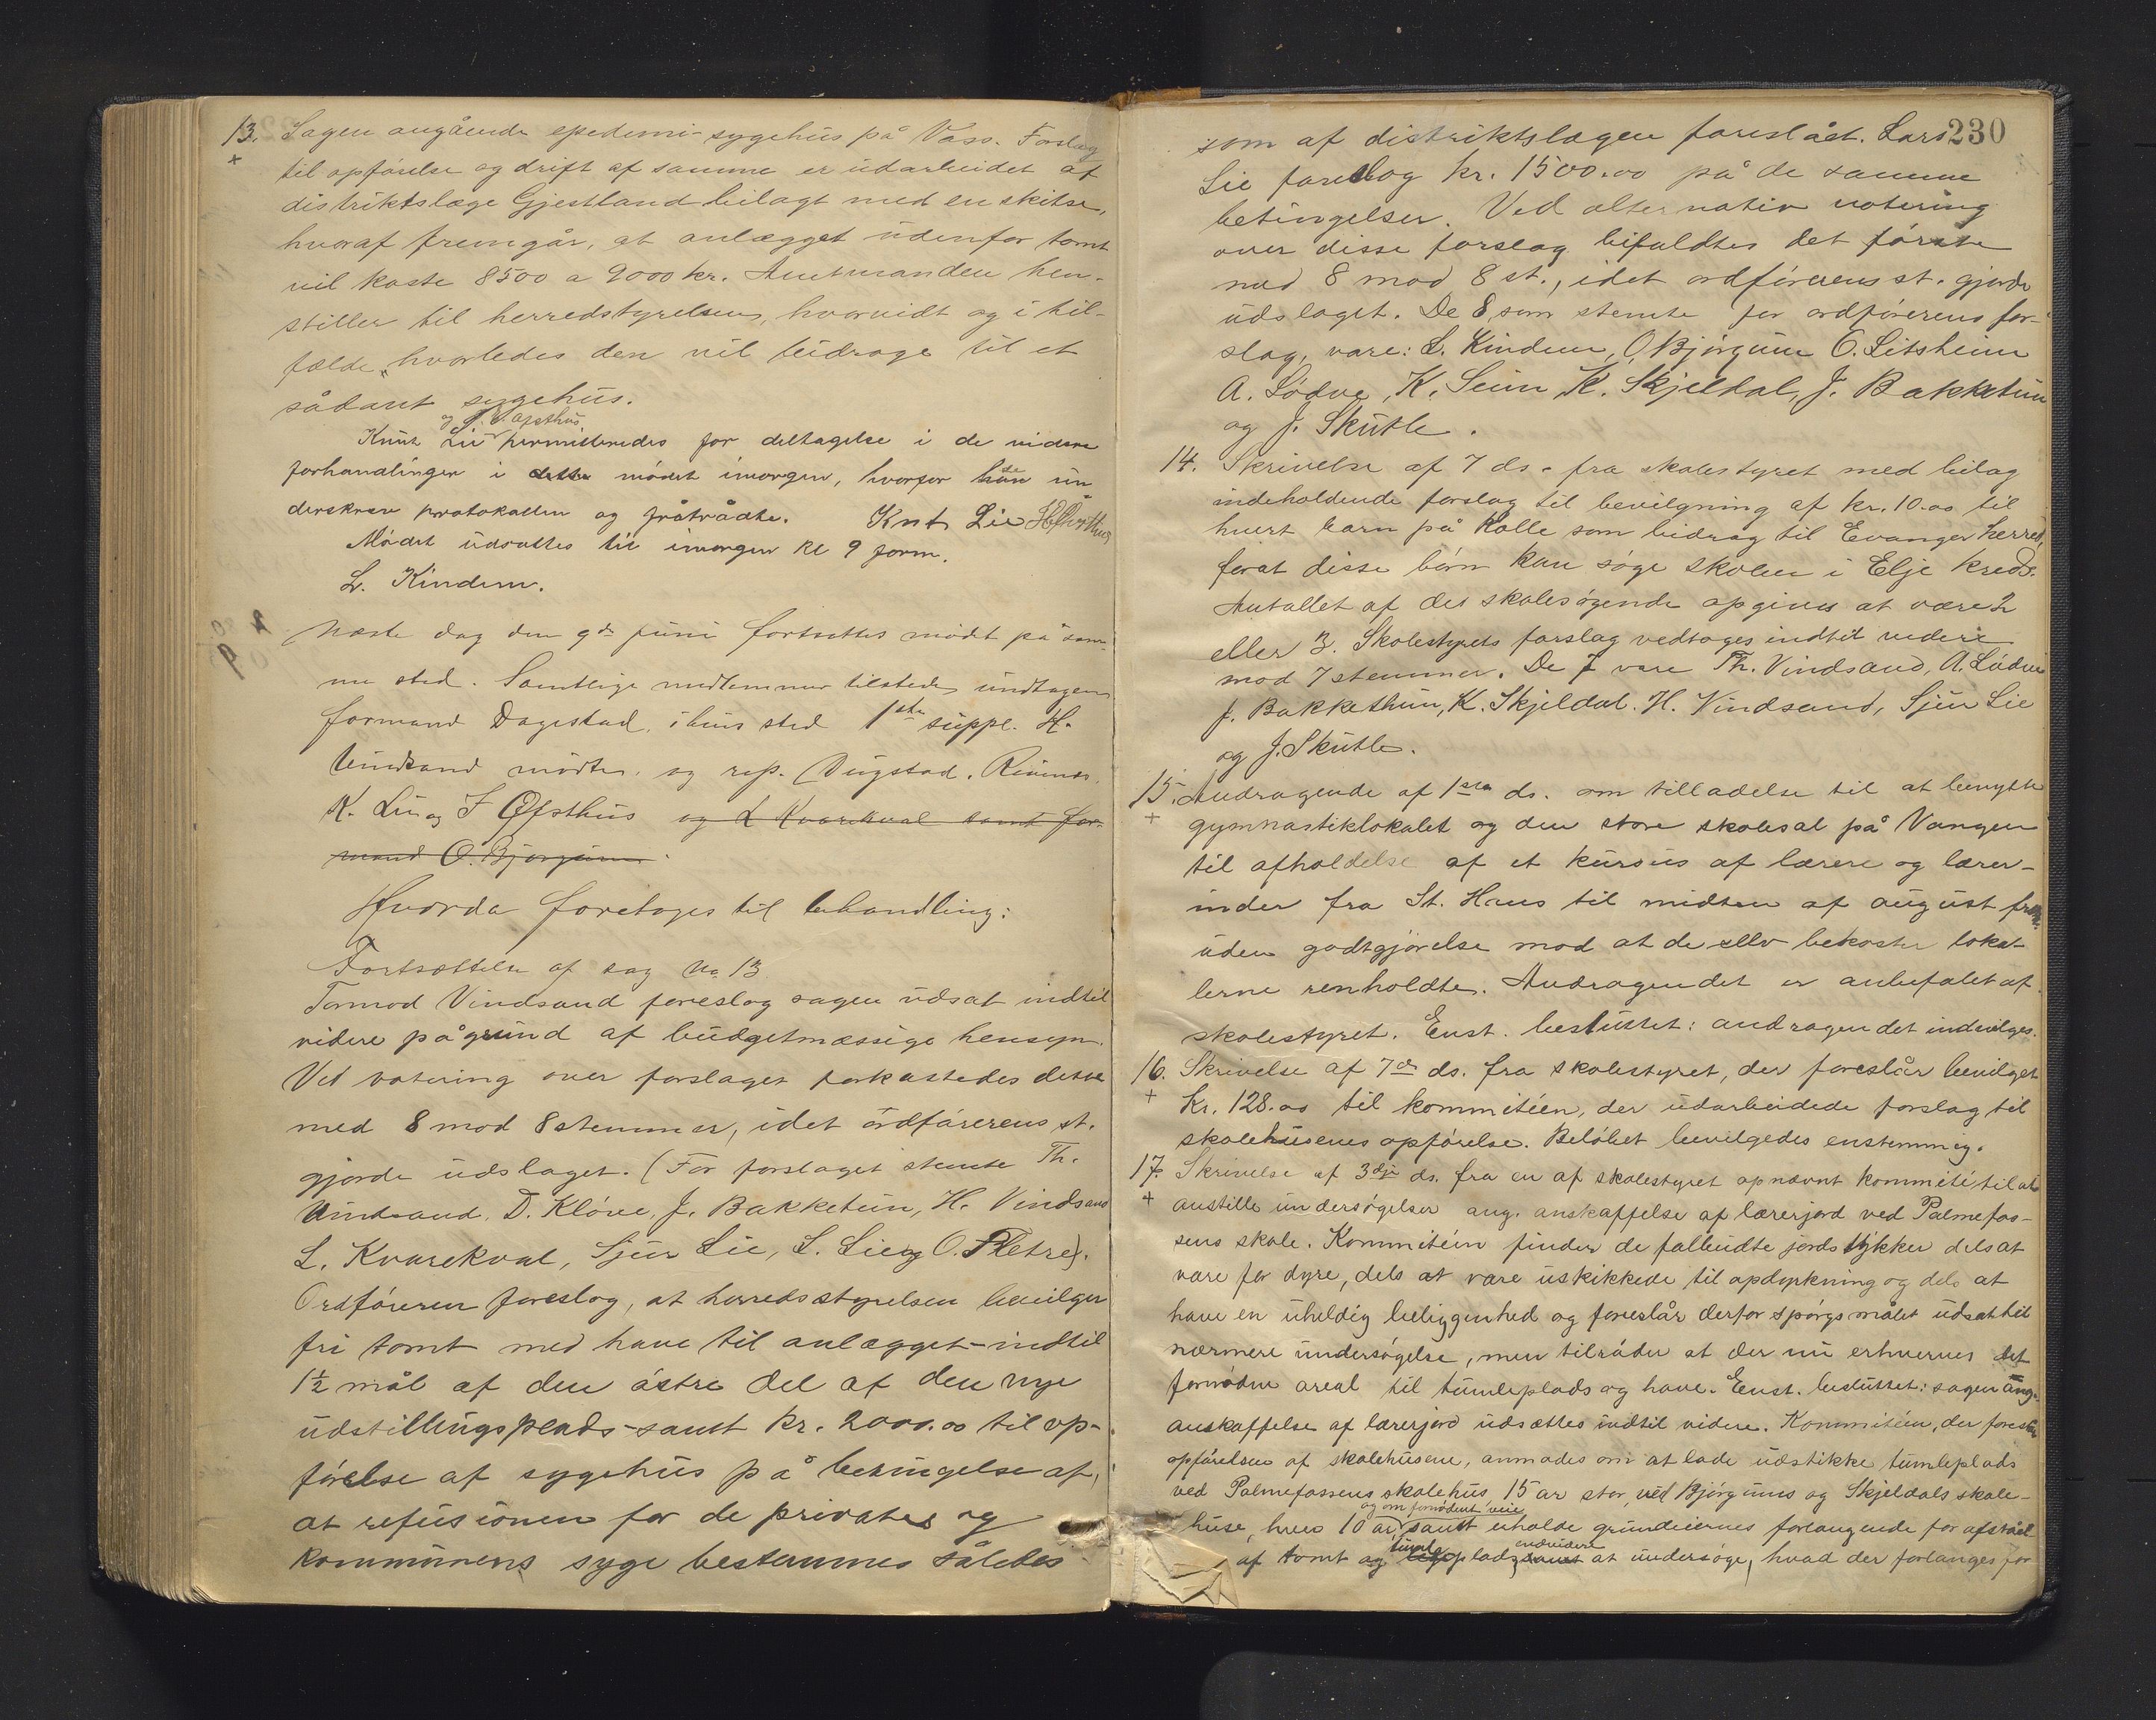 13. Sagen angående epedemi-sygehus på Voss. Forslag
+
til opførelse og drift af samme er udarbeidet af
distriktslæge Gjestland bilagt med en skitse,
hvoraf fremgår, at anlægget udenfor tomt
vil koste 8500 a 9000 kr. Amtmanden hen-
stiller til herredstyrelsen, hvorvidt og i til-
fælde hvorledes den vil bidrage til et
sådant sygehus.
og J. Øpsthus
Knut Lie permitteredes for deltagelse i de videre
forhandlinger i dette mødet imorgen, hvorfor de un
derskrev protokollen og fråtrådte. Knt Lie
Mødet udsattes til imorgen kl 9 form.
L. Kindem.
Næste dag den 9de juni fortsattes mødt på sam-
me sted. Samtlige medlemmer tilstede undtagen
formand Dagestad, i hvis sted 1ste suppl. H.
Vindsand mødte, og rep. Dugstad, Rivenes,
K. Lie og J Øpsthus og L Kvarekval samt for-
mand O. Bjørgum.
Hvorda foretoges til behandling:
Fortsættelse af sag No 13
Tormod Vindsand foreslog sagen udsat indtil
videre på grund af budgetmæssige hensyn.
Ved votering over forslaget forkastedes dette
med 8 mod 8 stemmer, idet ordførerens st.
gjorde udslaget. (For forslaget stemte Th.
Vindsand, D. Kløve, J. Bakketun, H. Vindsand
L. Kvarekval, Sjur Lie, L. Lie og O. Fletre).
Ordføreren foreslog, at herredsstyrelsen bevilger
fri tomt med have til anlægget - indtil
1½ mål af den østre del af den nye
udstillingsplads - samt kr. 2000.00 til op-
førelse af sygehus på betingelse af,
at refusionen for de privates og
kommunens syge bestemmes således
230
som af distriktslægen foreslået. Lars
Lie foreslog kr. 1500.00 på de samme
betingelser. Ved alternativ votering
over disse forslag bifaldtes det første
med 8 mod 8 st., idet ordførerens st. gjorde
udslaget. De 8, som stemte for ordførerens for-
slag, vare: L. Kindem, O Bjørgum O. Litsheim
A. Lødve, K. Seim, K. Skjeldal, J. Bakketun
og J. Skutle.
14. Skrivelse af 7 ds. fra skolestyret med bilag
indeholdende forslag til bevilgning af kr. 10.00 til
hvert barn på Kolle som bidrag til Evanger herred,
forat disse børn kan søge skolen i Elje kreds.
Antallet af de skolesøgende opgives at være 2
eller 3. Skolestyrets forslag vedtoges indtil videre
mod 7 stemmer. De 7 vare Th. Vindsand, A. Lødve
J. Bakkethun, K. Skjeldal. H. Vindsand, Sjur Lie
og J. Skutle.
15. Andragende af 1ste ds. om tilladelse til at benytte
+
gymnastiklokalet og den store skolesal på Vangen
til afholdelse af et kursus af lærere og lærer-
inder fra St. Hans til midten af august
uden godtgjørelse mod at de selv bekoster loka-
lerne renholdte. Andragendet er anbefalet af
skolestyret. Enst. besluttet: andragendet indvilges.
16. Skrivelse af 7de ds. fra skolestyret, der foreslår bevilget
+
Kr. 128.00 til kommitéen, der udarbeidede forslag til
skolehusenes opførelse. Beløbet bevilgedes enstemmig.
17. Skrivelse af 3dje ds. fra en af skolestyret opnævnt kommité, til at
+
anstille undersøgelser ang. anskaffelse af lærerjord ved Palmefos-
sens skole. Kommitéen finder de falbudte jordstykker dels at
være for dyre, dels at være uskikkede til opdyrkning og dels at
have en uheldig beliggenhed og foreslår derfor spørgsmålet udsat til
nærmere undersøgelse, men tilråder at der nu erhverves det
fornødne areal til tumleplads og have. Enst. besluttet: sagen ang.
anskaffelse af lærerjord udsættes indtil videre. Kommitéen, der forestår
opførelsen af skolehusene, anmodes om at lade udstikke tumleplads
ved Palmefossens skolehus, 15 ar stor, ved Bjørgums og Skjeldals skole-
og om fornødent veie
huse, hves 10 ar, samt enholde grundeiernes forlangende for afståel
tumle undvidere
af tomt og plads, samt at undersøge, hvad der forlanges for